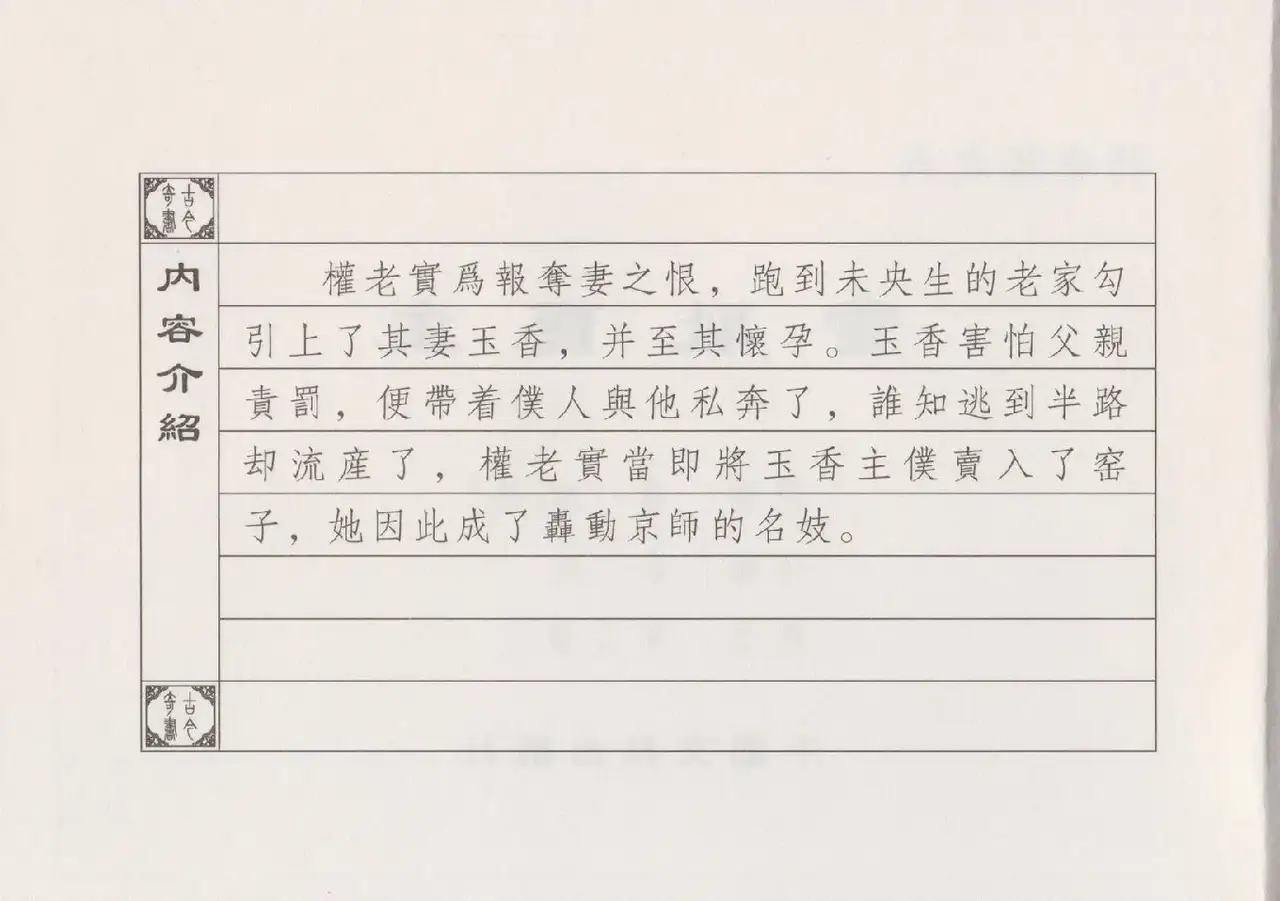 古今
奇書
内容介紹
權老實爲報奪妻之恨，跑到未央生的老家勾
引上了其妻玉香，并至其懷孕。玉香害怕父親
責罰，便帶着僕人與他私奔了，誰知逃到半路
却流産了，權老實當即將玉香主僕賣入了窑
子，她因此成了轟動京師的名妓。
古今
奇書